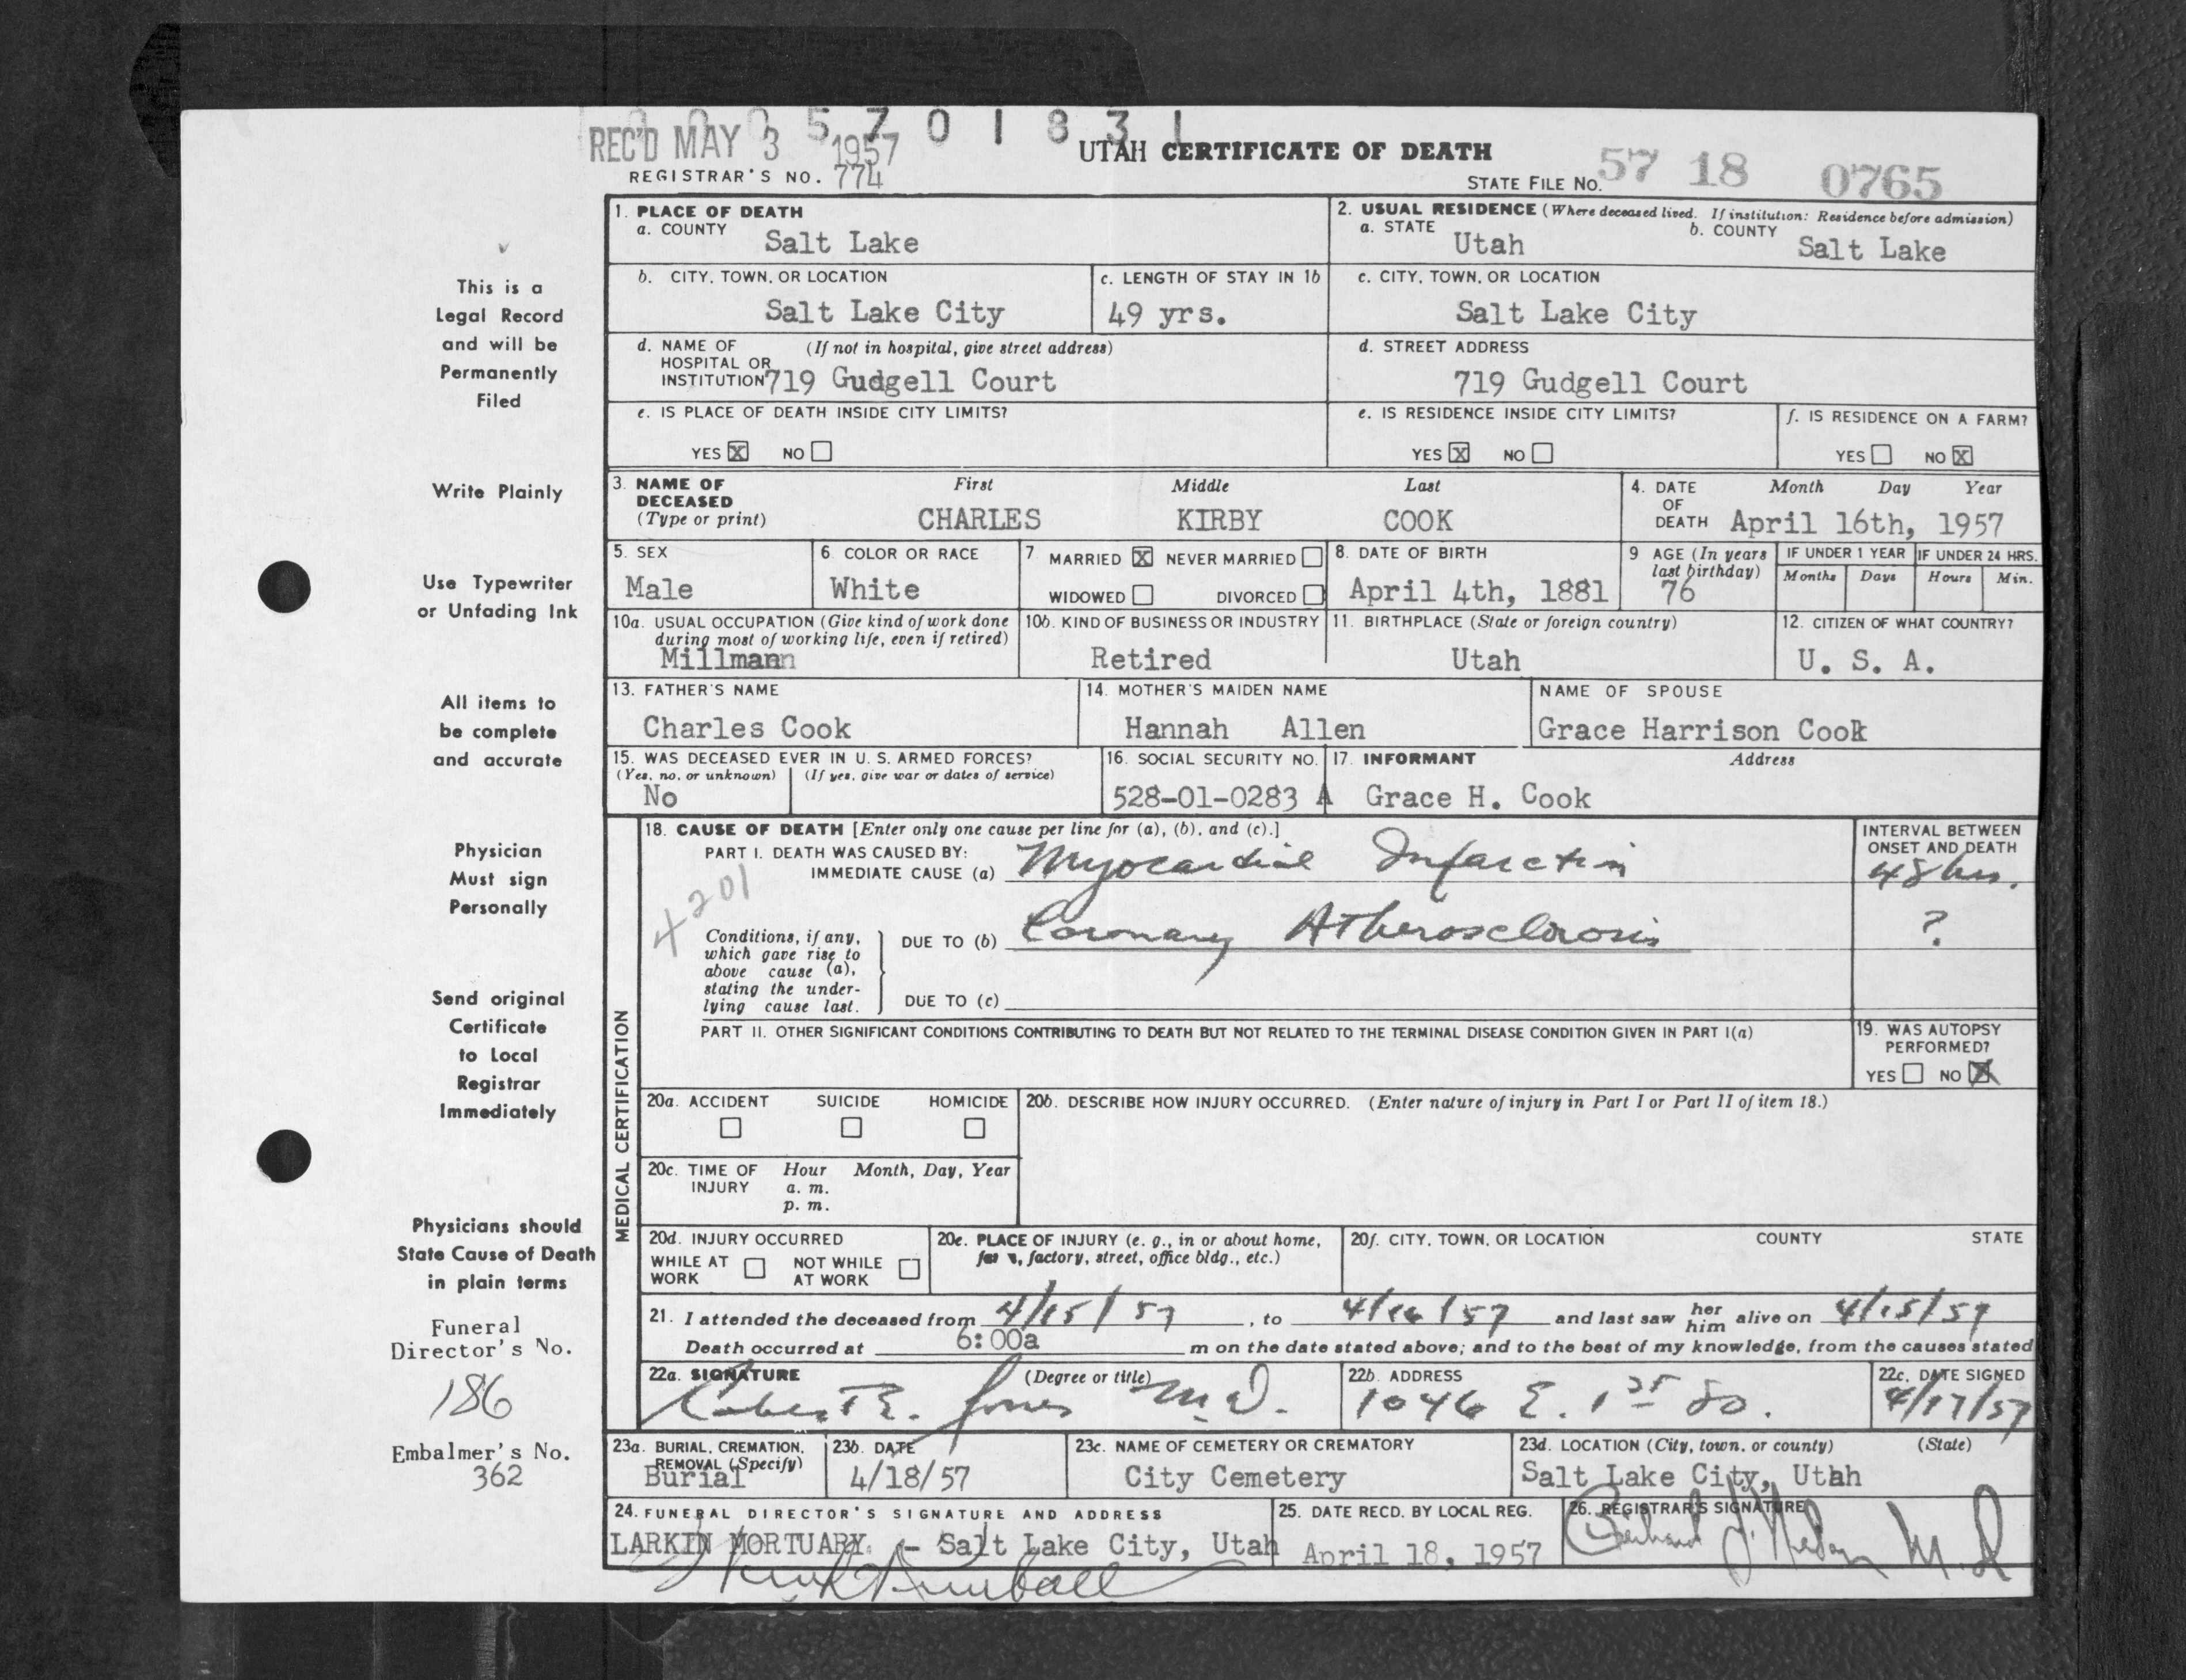 00 0 5 7 0 1 8 3 1
REC'D MAY 3 1957
UTAH CERTIFICATE OF DEATH
REGISTRAR'S NO. 774
STATE FILE NO. 57 18 0765
This is a
Legal Record
and will be
Permanently
Filed
Write Plainly
Use Typewriter
or Unfading Ink
All items to
be complete
and accurate
Physician
Must sign
Personally
Send original
Certificate
to Local
Registrar
Immediately
Physicians should
State Cause of Death
in plain terms
Funeral
Director's No.
186
Embalmer's No.
362
1. PLACE OF DEATH
a. COUNTY Salt Lake
2. USUAL RESIDENCE (Where deceased lived. If institution: Residence before admission)
a. STATE Utah b. COUNTY Salt Lake
b. CITY, TOWN, OR LOCATION
Salt Lake City
c. LENGTH OF STAY IN 1b
49 yrs.
c. CITY, TOWN, OR LOCATION
Salt Lake City
d. NAME OF (If not in hospital, give street address)
HOSPITAL OR
INSTITUTION 719 Gudgell Court
d. STREET ADDRESS
719 Gudgell Court
e. IS PLACE OF DEATH INSIDE CITY LIMITS?
YES X NO
e. IS RESIDENCE INSIDE CITY LIMITS?
YES X NO
f. IS RESIDENCE ON A FARM?
YES NO X
3. NAME OF First Middle Last
DECEASED
(Type or print) CHARLES KIRBY COOK
4. DATE Month Day Year
OF
DEATH April 16th, 1957
5. SEX
Male
6. COLOR OR RACE
White
7 MARRIED X NEVER MARRIED
WIDOWED DIVORCED
8. DATE OF BIRTH
April 4th, 1881
9 AGE (In years
last birthday)
76
IF UNDER 1 YEAR
Months Days
IF UNDER 24 HRS.
Hours Min.
10a. USUAL OCCUPATION (Give kind of work done
during most of working life, even if retired)
Millmann
10b. KIND OF BUSINESS OR INDUSTRY
Retired
11. BIRTHPLACE (State or foreign country)
Utah
12. CITIZEN OF WHAT COUNTRY?
U. S. A.
13. FATHER'S NAME
Charles Cook
14. MOTHER'S MAIDEN NAME
Hannah Allen
NAME OF SPOUSE
Grace Harrison Cook
15. WAS DECEASED EVER IN U. S. ARMED FORCES?
(Yes, no, or unknown) (If yes, give war or dates of service)
No
16. SOCIAL SECURITY NO.
528-01-0283 A
17. INFORMANT Address
Grace H. Cook
MEDICAL CERTIFICATION
18. CAUSE OF DEATH [Enter only one cause per line for (a), (b), and (c).]
PART I. DEATH WAS CAUSED BY:
IMMEDIATE CAUSE (a) Myocardial Infarction
4201
Conditions, if any,
which gave rise to
above cause (a),
stating the under-
lying cause last.
DUE TO (b) Coronary Atherosclerosis
DUE TO (c)
INTERVAL BETWEEN
ONSET AND DEATH
48 hrs.
?
PART II. OTHER SIGNIFICANT CONDITIONS CONTRIBUTING TO DEATH BUT NOT RELATED TO THE TERMINAL DISEASE CONDITION GIVEN IN PART I(a)
19. WAS AUTOPSY
PERFORMED?
YES NO X
20a. ACCIDENT SUICIDE HOMICIDE
20b. DESCRIBE HOW INJURY OCCURRED. (Enter nature of injury in Part I or Part II of item 18.)
20c. TIME OF Hour Month, Day, Year
INJURY a. m.
p. m.
20d. INJURY OCCURRED
WHILE AT NOT WHILE
WORK AT WORK
20e. PLACE OF INJURY (e. g., in or about home,
factory, street, office bldg., etc.)
20f. CITY, TOWN, OR LOCATION COUNTY STATE
21. I attended the deceased from 4/15/57, to 4/16/57 and last saw her him alive on 4/15/57
Death occurred at 6:00a m on the date stated above; and to the best of my knowledge, from the causes stated
22a. SIGNATURE (Degree or title)
Robert E. Jones M.D.
22b. ADDRESS
1046 E. 1st So.
22c. DATE SIGNED
4/17/57
23a. BURIAL, CREMATION,
REMOVAL (Specify)
Burial
23b. DATE
4/18/57
23c. NAME OF CEMETERY OR CREMATORY
City Cemetery
23d. LOCATION (City, town, or county) (State)
Salt Lake City, Utah
24. FUNERAL DIRECTOR'S SIGNATURE AND ADDRESS
LARKIN MORTUARY. - Salt Lake City, Utah
Kimball
25. DATE RECD. BY LOCAL REG.
April 18, 1957
26. REGISTRAR'S SIGNATURE
M.D